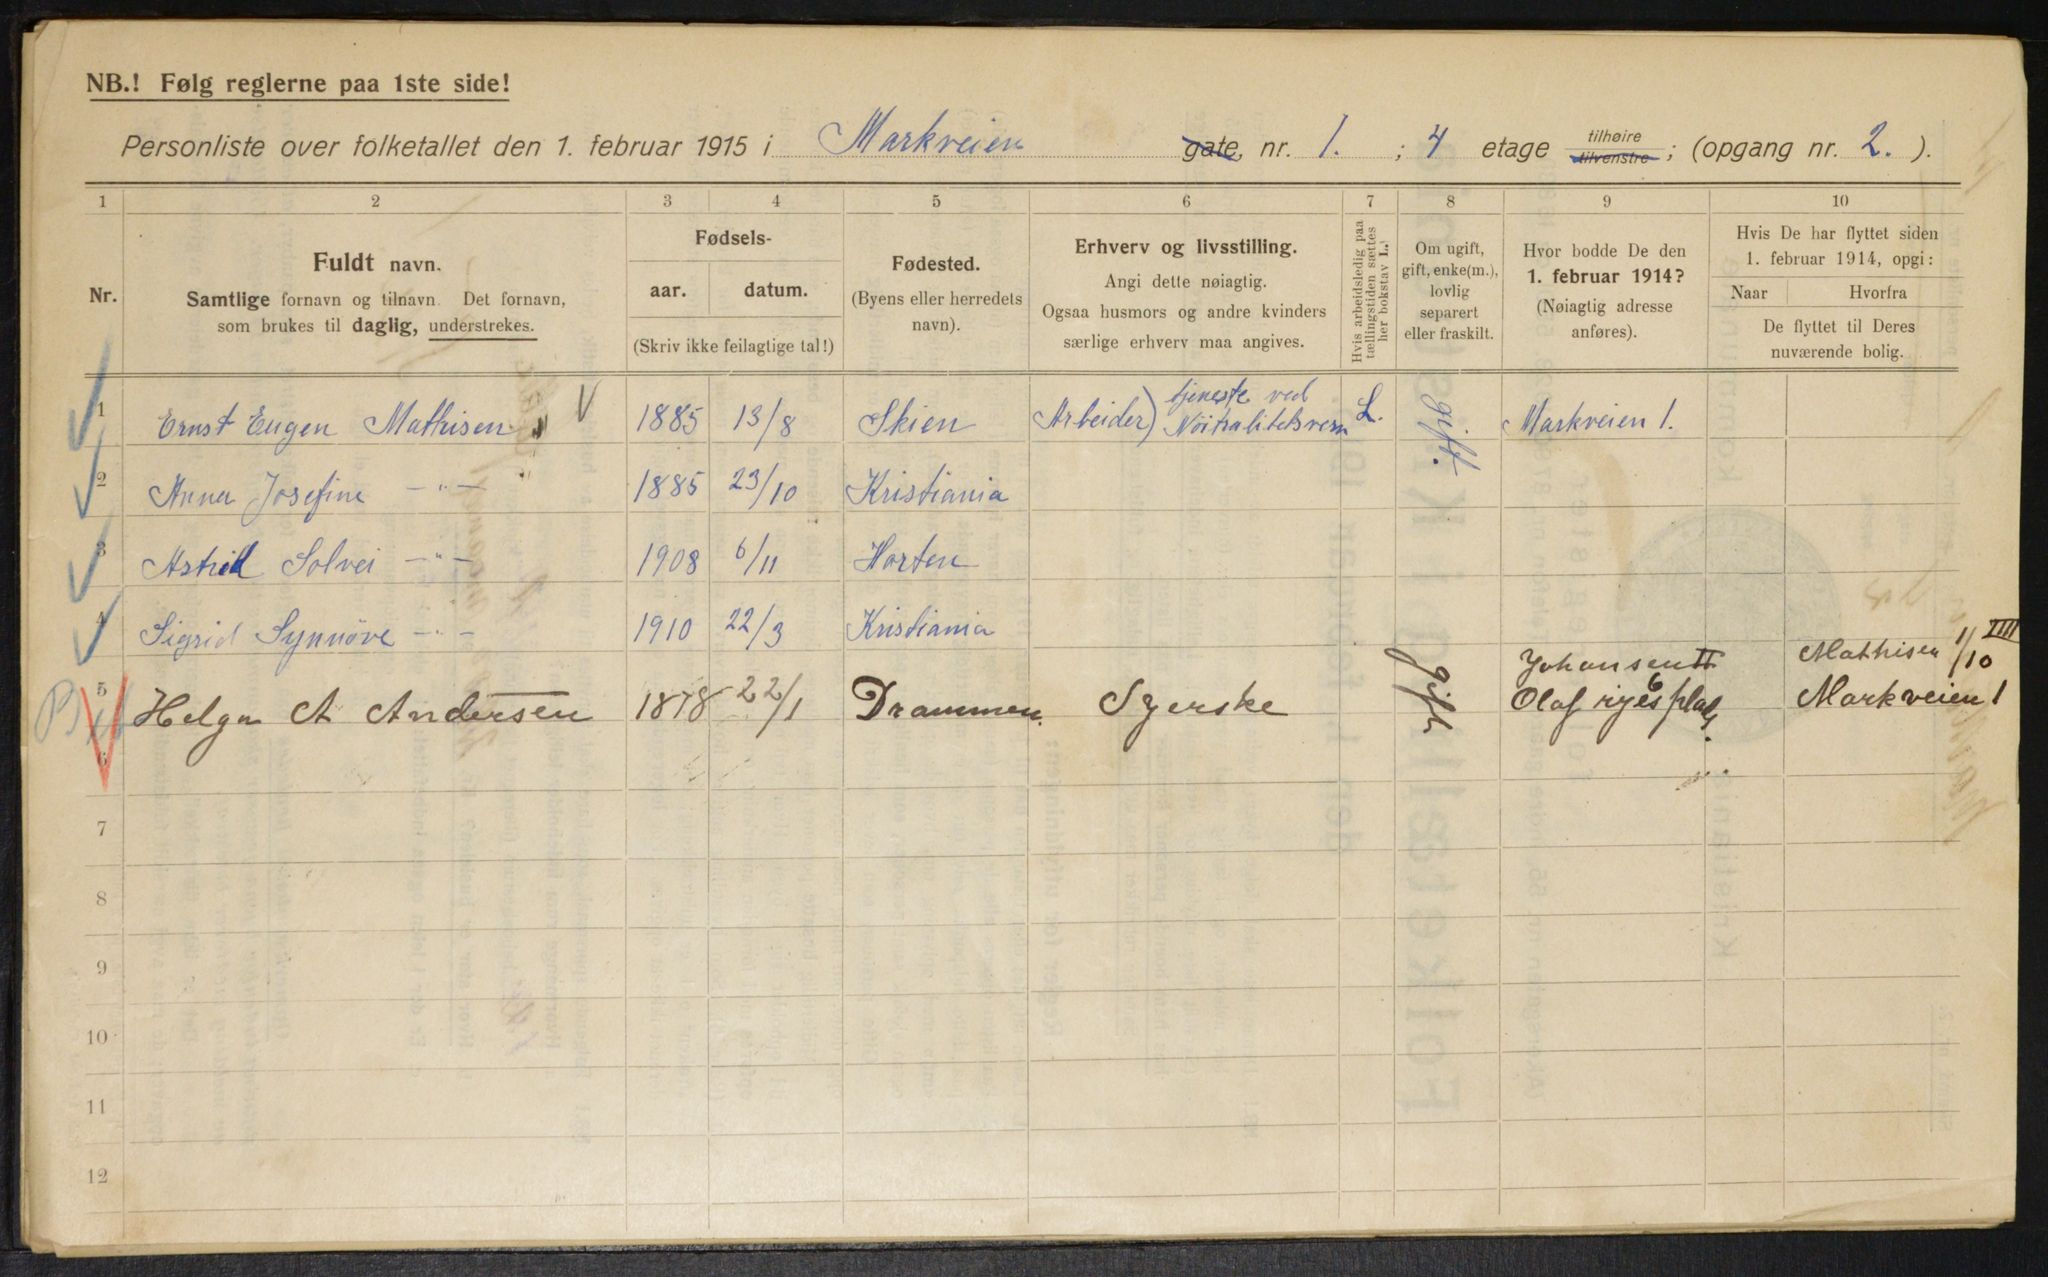 NB.! Følg reglerne paa 1ste side!
Personliste over folketallet den 1. februar 1915 i Markveien gate, nr. 1. ; 4 etage tilhøire tilvenstre ; (opgang nr. 2. ).
1 2 3 4 5 6 7 8 9 10
Nr.
Fuldt navn.
Samtlige fornavn og tilnavn. Det fornavn,
som brukes til daglig, understrekes.
Fødsels-
aar. datum.
(Skriv ikke feilagtige tal!)
Fødested.
(Byens eller herredets
navn).
Erhverv og livsstilling.
Angi dette nøiagtig.
Ogsaa husmors og andre kvinders
særlige erhverv maa angives.
Hvis arbeidsledig paa
tællingstiden sættes
her bokstav L.
Om ugift,
gift, enke(m.),
lovlig
separert
eller fraskilt.
Hvor bodde De den
1. februar 1914?
(Nøiagtig adresse
anføres).
Hvis De har flyttet siden
1. februar 1914, opgi:
Naar Hvorfra
De flyttet til Deres
nuværende bolig.
1 Ernst Eugen Mathisen 1885 13/8 Skien Arbeider) tjeneste ved Nöitralitetsvern L. gift. Markveien 1.
2 Anna Josefine —"— 1885 23/10 Kristiania
3 Astrid Solvei —"— 1908 6/11 Horten
4 Sigrid Synnöve —"— 1910 22/3 Kristiania
5 Helga A Andersen 1878 22/1 Drammen. Syerske gift Johansen II Olaf ryes plads 6 Mathisen 1/10 IIII Markveien 1
6
7
8
9
10
11
12